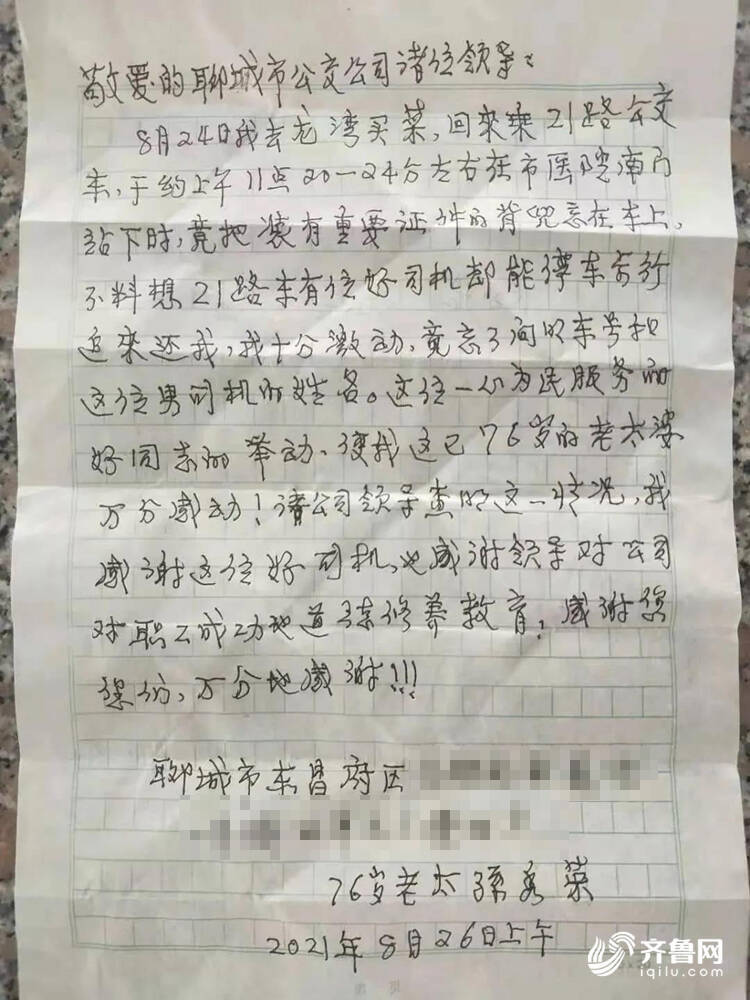 敬爱的聊城市公交公司诸位领导：
8月24日我去龙湾买菜，回来乘21路公交
车，于约上午11点20—24分左右在市医院南门
站下时，竟把装有重要证件的背兜忘在车上。
不料想21路车有位好司机却能停车步行
追来还我，我十分激动，竟忘了问明车号和
这位男司机的姓名。这位一心为民服务的
好同志的举动、使我这已76岁的老太婆
万分感动！请公司领导查明这一情况，我
感谢这位好司机、也感谢领导对公司
对职工成功地道德修养教育；感谢您
万分地感谢!!!
聊城市东昌府区
76岁老太孫秀荣
2021年8月26日上午
齐鲁网
iqilu.com